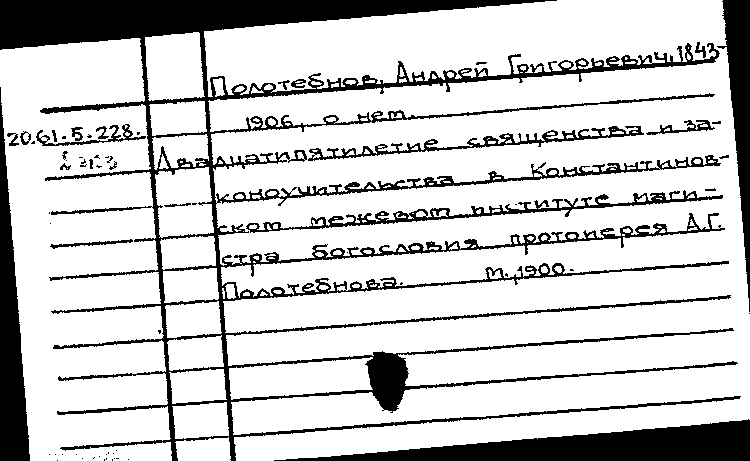 Полотебнов, Андрей Григорьевич, 1843-
1906, о нем.
20.61.5.228.
2 экз
Двадцатипятилетие священства и за-
коноучительства в Константинов-
ском межевом институте маги-
стра богословия протоиерея А.Г.
Полотебнова. М., 1900.